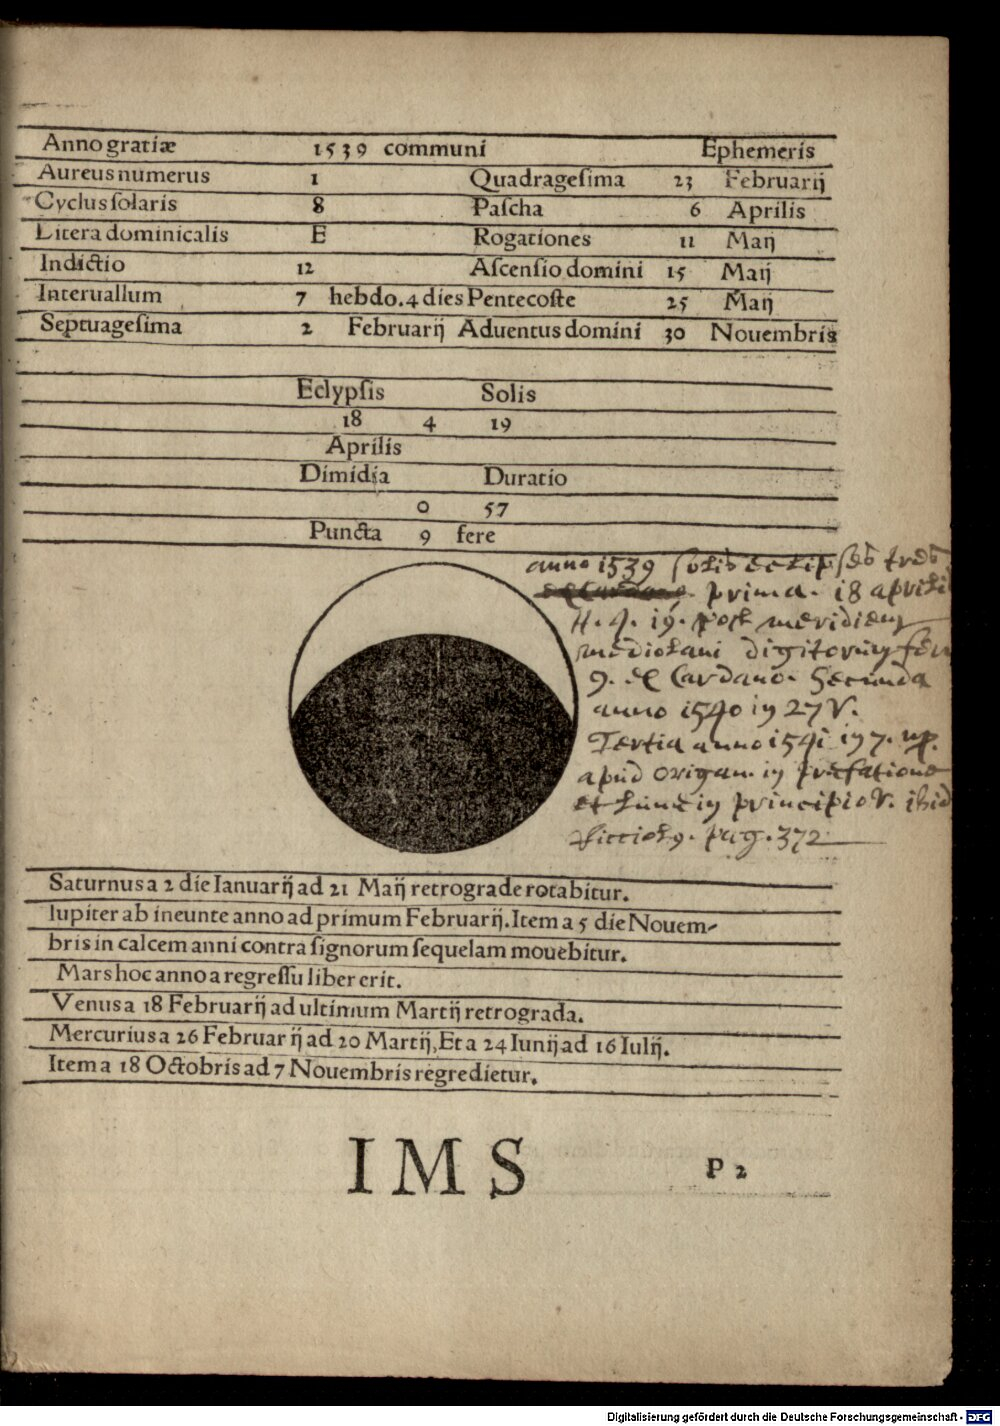 Anno gratiæ 1539 communi Ephemeris
Aureus numerus 1 Quadrageſima 23 Februarij
Cyclus ſolaris 8 Paſcha 6 Aprilis
Litera dominicalis E Rogationes 11 Maij
Indictio 12 Aſcenſio domini 15 Maij
Interuallum 7 hebdo. 4 dies Pentecoſte 25 Maij
Septuageſima 2 Februarij Aduentus domini 30 Nouembris
Eclypſis Solis
18 4 19
Aprilis
Dimidia Duratio
0 57
Puncta 9 fere
anno 1539 ſolis eclipſes tres
prima. 18 aprili
H. 4. 19. poſt meridiem
mediolani digitorum fere
9. ex Cardano. Secunda
anno 1540 in 27 ♈.
Tertia anno 1541 in 7. ♍.
apud origan. in præfatione
et lunæ in principio ♈. ibid
Ricciol9. pag. 372
Saturnus a 2 die Ianuarij ad 21 Maij retrograde rotabitur.
Iupiter ab ineunte anno ad primum Februarij. Item a 5 die Nouem-
bris in calcem anni contra ſignorum ſequelam mouebitur.
Mars hoc anno a regreſſu liber erit.
Venus a 18 Februarij ad ultimum Martij retrograda.
Mercurius a 26 Februarij ad 20 Martij, Et a 24 Iunij ad 16 Iulij.
Item a 18 Octobris ad 7 Nouembris regredietur.
IMS P 2
Digitalisierung gefördert durch die Deutsche Forschungsgemeinschaft - DFG